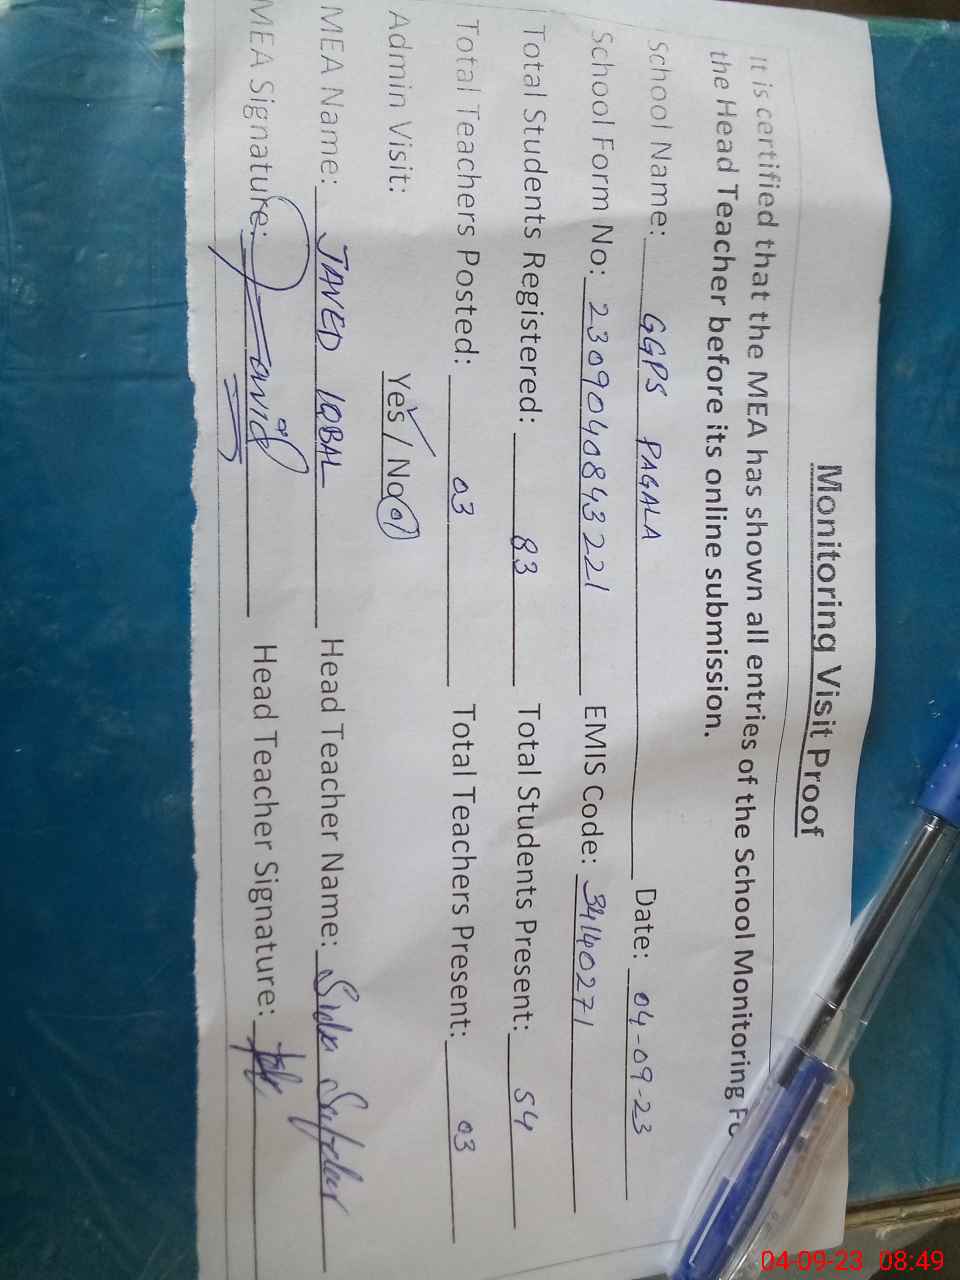 Monitoring Visit Proof
It is certified that the MEA has shown all entries of the School Monitoring Fo
the Head Teacher before its online submission.
School Name: GGPS PAGALA Date: 04-09-23
School Form No: 2309040843221 EMIS Code: 34140271
Total Students Registered: 83 Total Students Present: 54
Total Teachers Posted: 03 Total Teachers Present: 03
Admin Visit: Yes / No 01
MEA Name: JAVED IQBAL Head Teacher Name: Sidra Safdar
MEA Signature: Javid Head Teacher Signature:
04-09-23 08:49